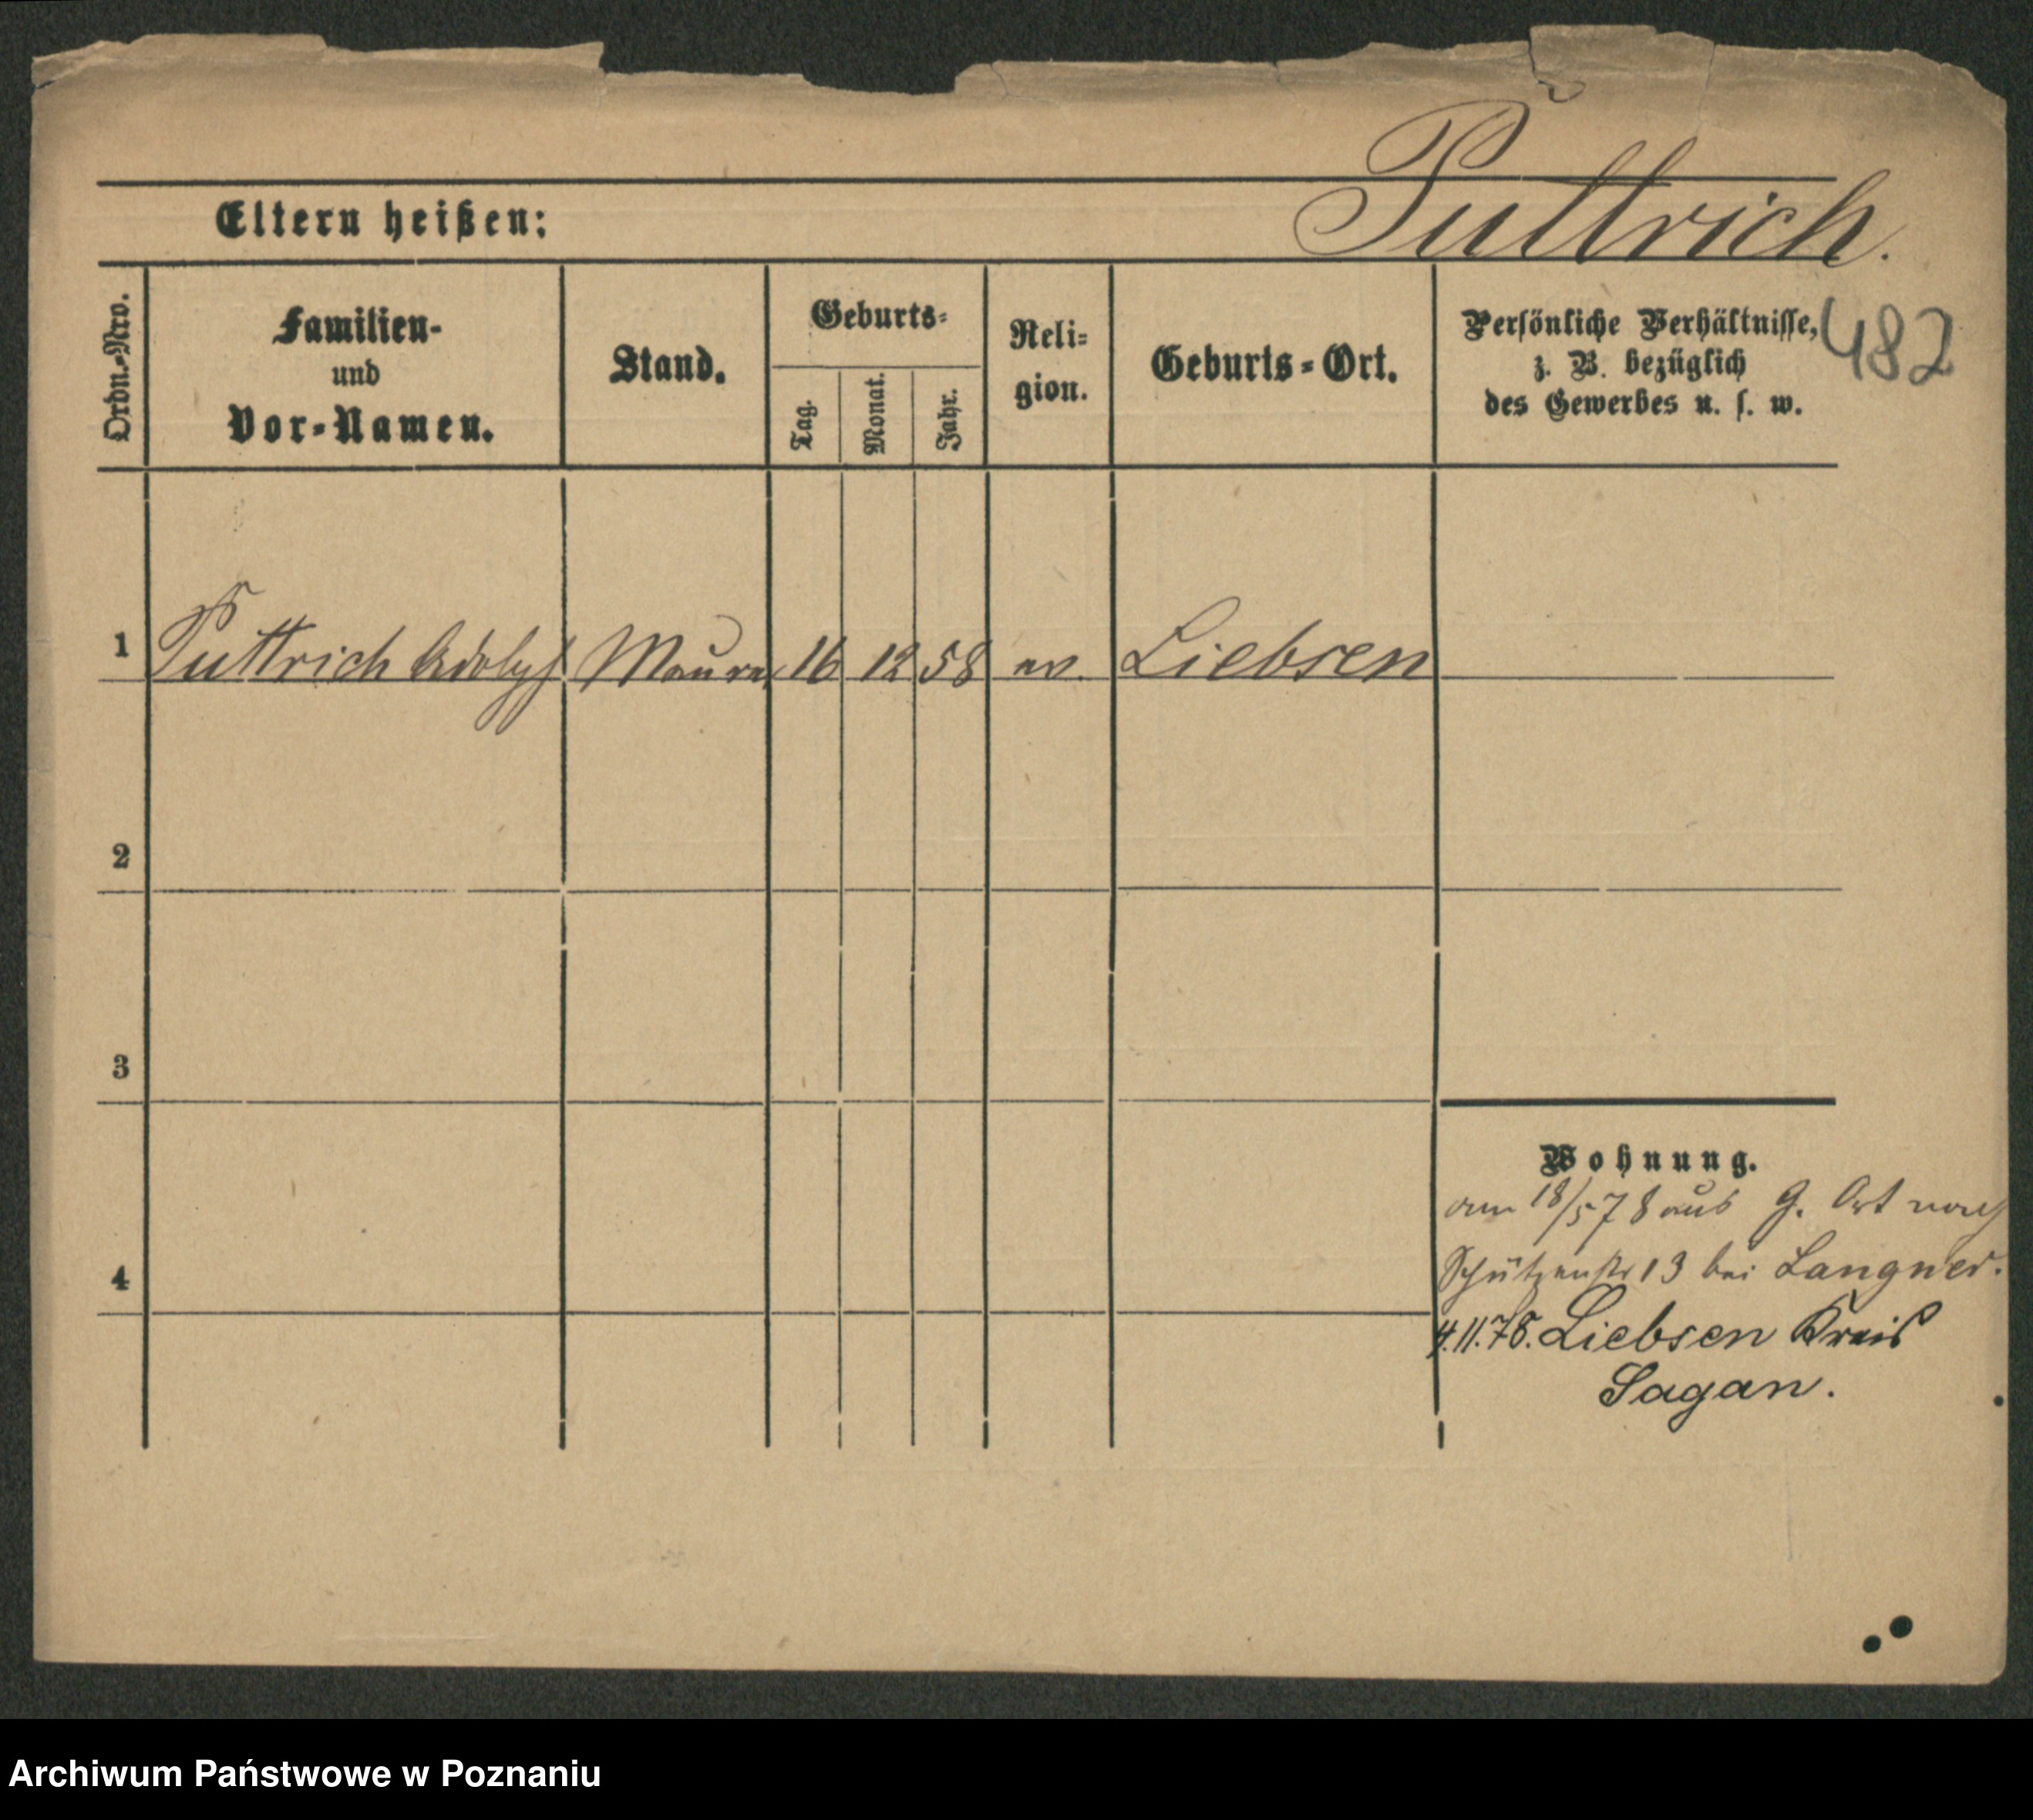 Puttrich.
Eltern heißen:
Ordn.-Nro.
Familien-
und
Vor-Namen.
Stand.
Geburts-
Tag.
Monat.
Jahr.
Reli-
gion.
Geburts-Ort.
Persönliche Verhältnisse,
z. B. bezüglich
des Gewerbes u. s. w.
482
1 Puttrich Adolph Maurer 16 12 58 ev. Liebsen
2
3
4
Wohnung.
am 18/5 78 aus G. Ort nach
Schützenstr 13 bei Langner.
4.11.78. Liebsen Kreis
Sagan.
Archiwum Państwowe w Poznaniu